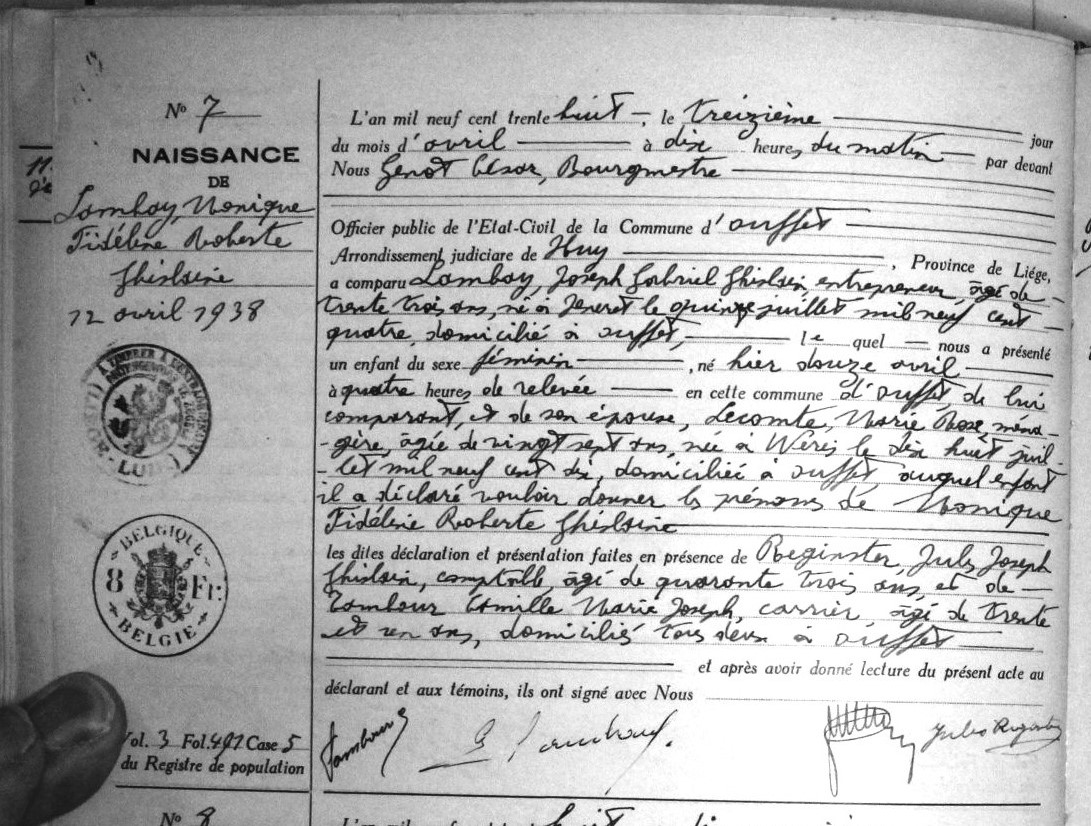 N° 7
NAISSANCE
DE
Lambay, Monique
Fidéline Roberte
Ghislaine
12 avril 1938
BELGIQUE
8 Fr:
BELGIE
Vol. 3 Fol. 492 Case 5
du Registre de population
L'an mil neuf cent trente huit, le treizième jour
du mois d'avril à dix heures du matin par devant
Nous Genot César, Bourgmestre
Officier public de l'Etat-Civil de la Commune d'Ouffet
Arrondissement judiciaire de Huy, Province de Liége,
a comparu Lambay, Joseph Gabriel Ghislain, entrepreneur, âgé de
trente trois ans, né à Jeneret le quinze juillet mil neuf cent
quatre, domicilié à Ouffet, lequel nous a présenté
un enfant du sexe féminin, né hier douze avril
à quatre heures de relevée en cette commune d'Ouffet, de lui
comparant, et de son épouse, Lecomte, Marie Rose, ména-
-gère, âgée de vingt sept ans, née à Wéris le dix huit juil-
-let mil neuf cent dix, domiciliée à Ouffet, auquel enfant
il a déclaré vouloir donner les prénoms de Monique
Fidéline Roberte Ghislaine
les dites déclaration et présentation faites en présence de Reginster, Jules Joseph
Ghislain, comptable, âgé de quarante trois ans, et de
Tambour Camille Marie Joseph, carrier, âgé de trente
et un ans, domiciliés tous deux à Ouffet
et après avoir donné lecture du présent acte au
déclarant et aux témoins, ils ont signé avec Nous
Tambour
Jules Reginster
N° 8
L'an mil neuf cent trente huit